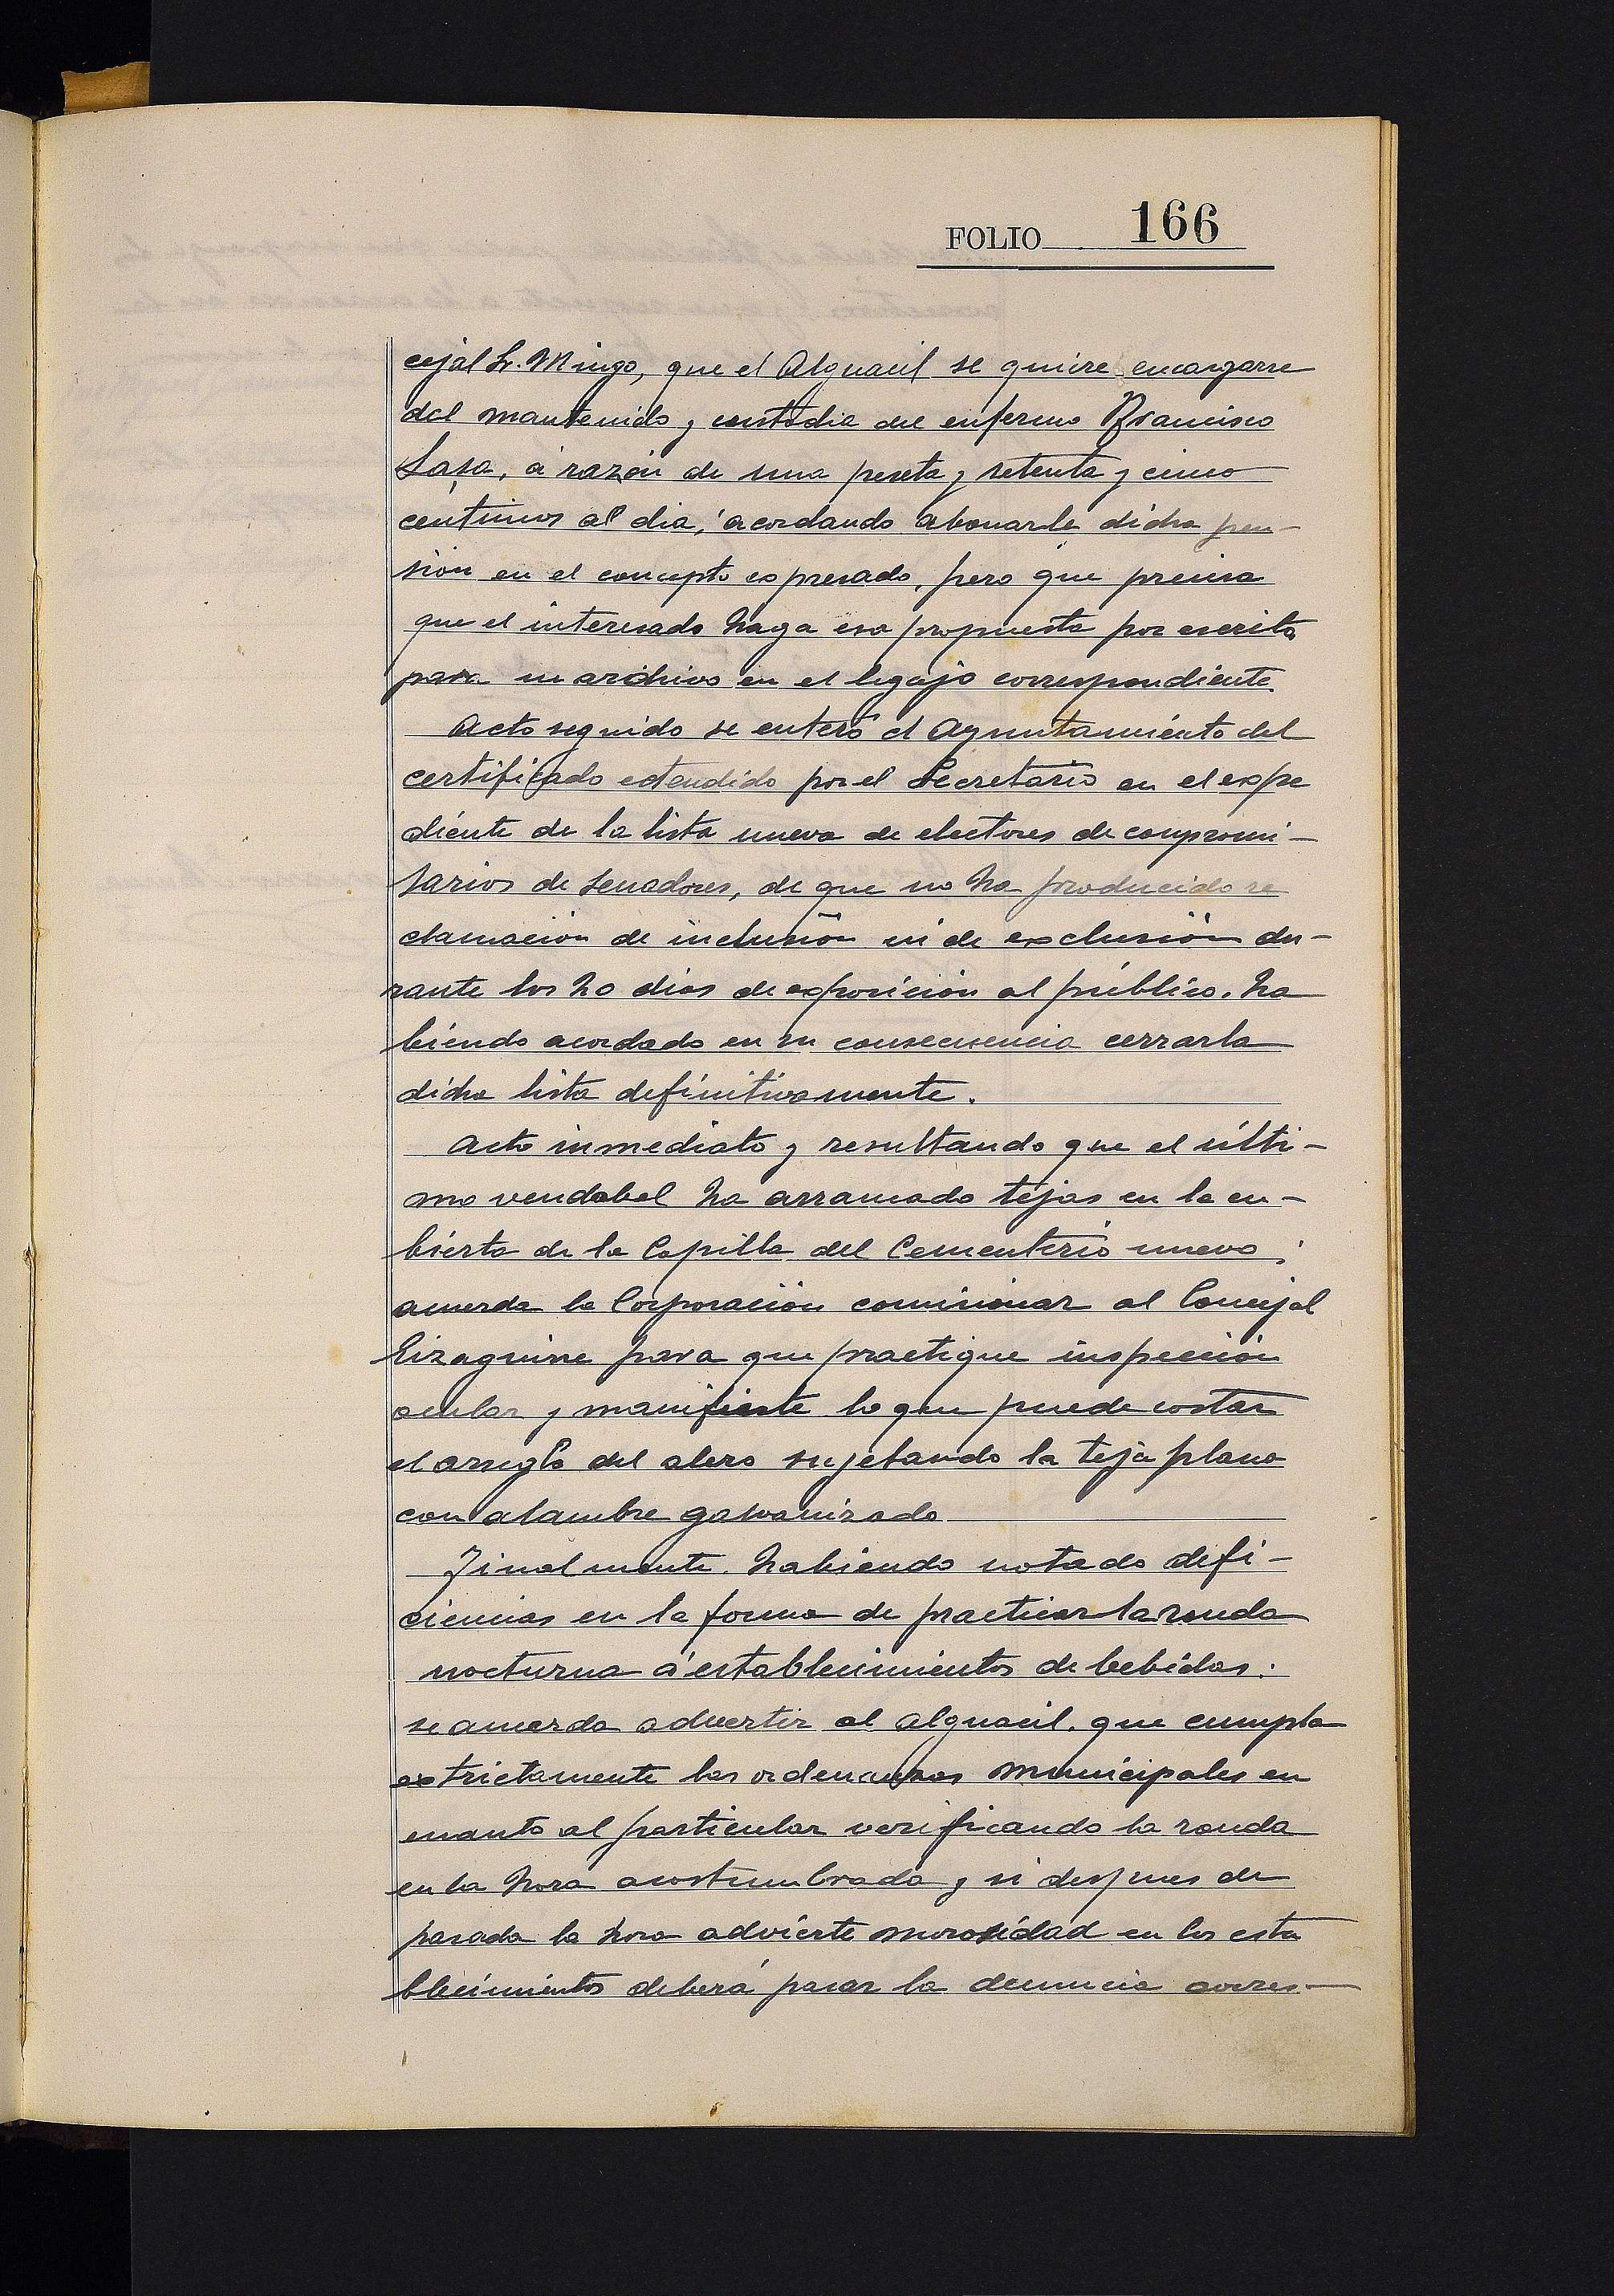 FOLIO 166
cejal Sr. Mingo, que el Alguacil se quiere encargarse
del mantenido y custodia del enfermo Francisco
Sasa, á razón de una peseta y setenta y cinco
centimos al dia; acordando abonarle dicha pen-
sion en el concepto expresado, pero que precisa
que el interesado haga esa propuesta por escrito
para su archivo en el legajo correspondiente.
Acto seguido se enteró el Ayuntamiento del
certificado estendido por el Secretario en el expe
diente de la lista nueva de electores de compromi-
sarios de Senadores, de que no ha producido re
clamación de inclusión ni de exclusión du-
rante los 20 dias de exposición al público. ha
biendo acordado en su consecuencia cerrarla
dicha lista definitivamente.
Acto inmediato y resultando que el últi-
mo vendabal ha arrancado tejas en la cu-
bierta de la Capilla del Cementerio nuevo;
acuerda la Corporación comisionar al Concejal
Eizaguirre para que practique inspección
ocular y manifieste lo que puede costar
el arreglo del alero sujetando la teja plana
con alambre galvanizado
Finalmente. habiendo notado defi-
ciencias en la forma de practicar la ronda
nocturna á establecimientos de bebidas.
se acuerda advertir al alguacil. que cumpla
extrictamente las ordenanzas municipales en
cuanto al particular verificando la ronda
en la hora acostumbrada y si despues de
pasada la hora advierte morosidad en los esta
blecimientos deberá pasar la denuncia corres-